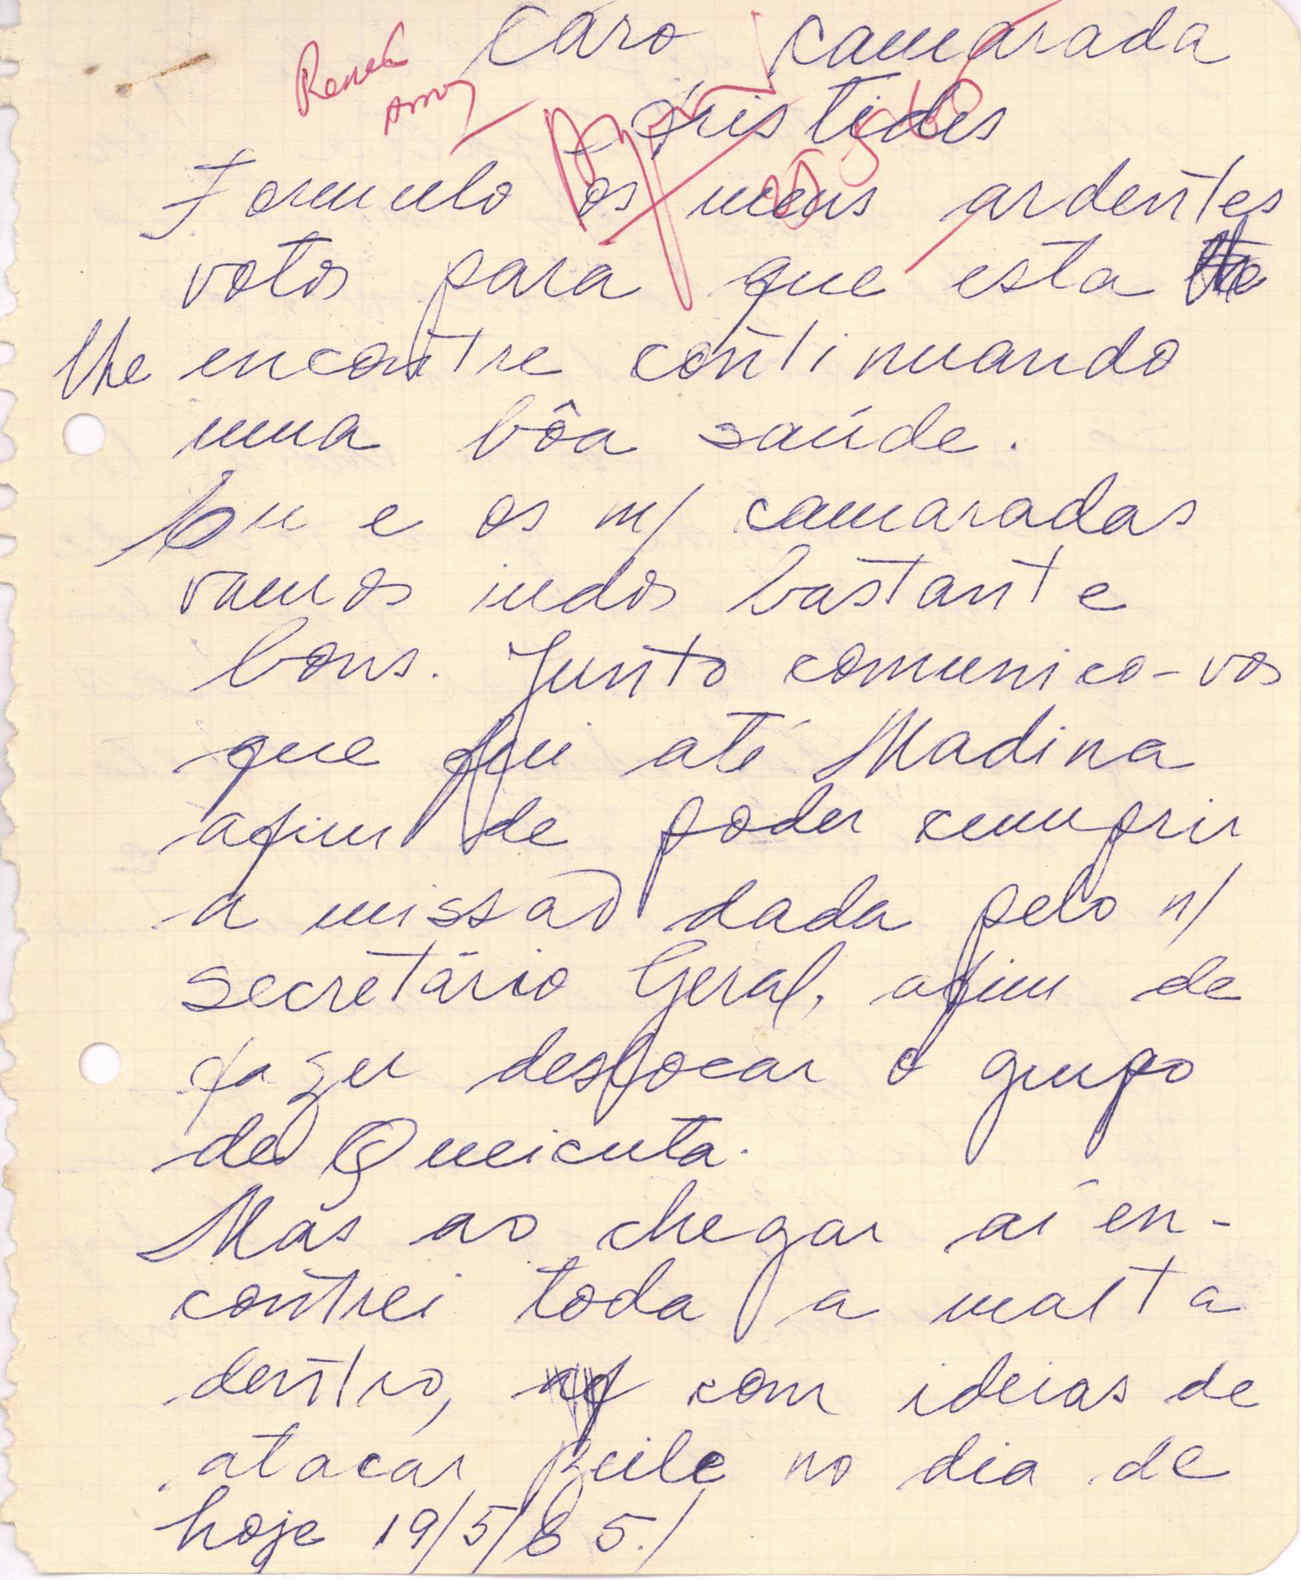 Caro camarada
Aristides
Formulo os meus ardentes
votos para que esta
lhe encontre continuando
numa bôa saúde.
Eu e os m/ camaradas
vamos indos bastante
bons. Junto comunico-vos
que fui até Madina
afim de poder cumprir
a missão dada pelo n/
secretário Geral, afim de
fazer deslocar o grupo
de Queicuta.
Mas ao chegar aí en-
contrei toda a malta
dentro, com ideias de
atacar no dia de
hoje 19/5/65./